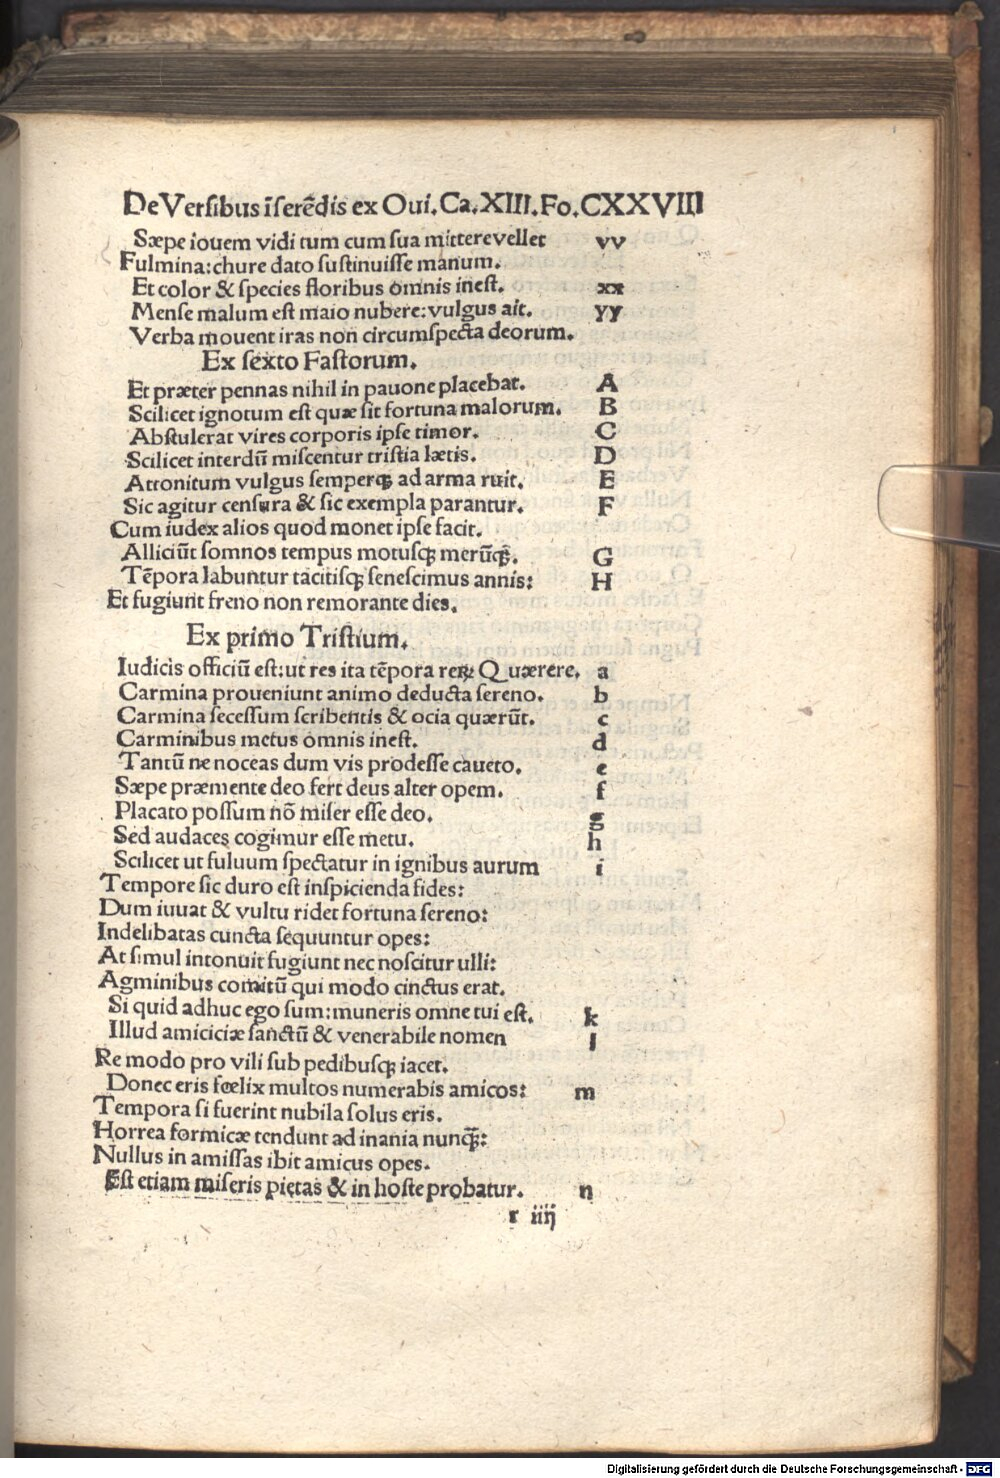 De Versibus īserēdis ex Oui. Ca. XIII. Fo. CXXVIII
Sæpe iouem vidi tum cum sua mittere vellet vv
Fulmina: thure dato sustinuisse manum.
Et color & species floribus omnis inest. xx
Mense malum est maio nubere: vulgus ait. yy
Verba mouent iras non circumspecta deorum.
Ex sexto Fastorum.
Et præter pennas nihil in pauone placebat. A
Scilicet ignotum est quæ sit fortuna malorum. B
Abstulerat vires corporis ipse timor. C
Scilicet interdū miscentur tristia lætis. D
Attonitum vulgus semperqꝫ ad arma ruit. E
Sic agitur censura & sic exempla parantur. F
Cum iudex alios quod monet ipse facit.
Alliciūt somnos tempus motusqꝫ merūqꝫ. G
Tēpora labuntur tacitisqꝫ senescimus annis: H
Et fugiunt freno non remorante dies.
Ex primo Tristium.
Iudicis officiū est: ut res ita tēpora reꝝ Quærere. a
Carmina proueniunt animo deducta sereno. b
Carmina secessum scribentis & ocia quærūt. c
Carminibus metus omnis inest. d
Tantū ne noceas dum vis prodesse caueto. e
Sæpe præmente deo fert deus alter opem. f
Placato possum nō miser esse deo. g
Sed audaces cogimur esse metu. h
Scilicet ut fuluum spectatur in ignibus aurum i
Tempore sic duro est inspicienda fides:
Dum iuuat & vultu ridet fortuna sereno:
Indelibatas cuncta sequuntur opes:
At simul intonuit fugiunt nec noscitur ulli:
Agminibus comitū qui modo cinctus erat.
Si quid adhuc ego sum: muneris omne tui est. k
Illud amiciciæ sanctū & venerabile nomen l
Re modo pro vili sub pedibusqꝫ iacet.
Donec eris fœlix multos numerabis amicos: m
Tempora si fuerint nubila solus eris.
Horrea formicæ tendunt ad inania nunqꝫ̄:
Nullus in amissas ibit amicus opes.
Est etiam miseris pietas & in hoste probatur. n
r iiij
Digitalisierung gefördert durch die Deutsche Forschungsgemeinschaft - DFG